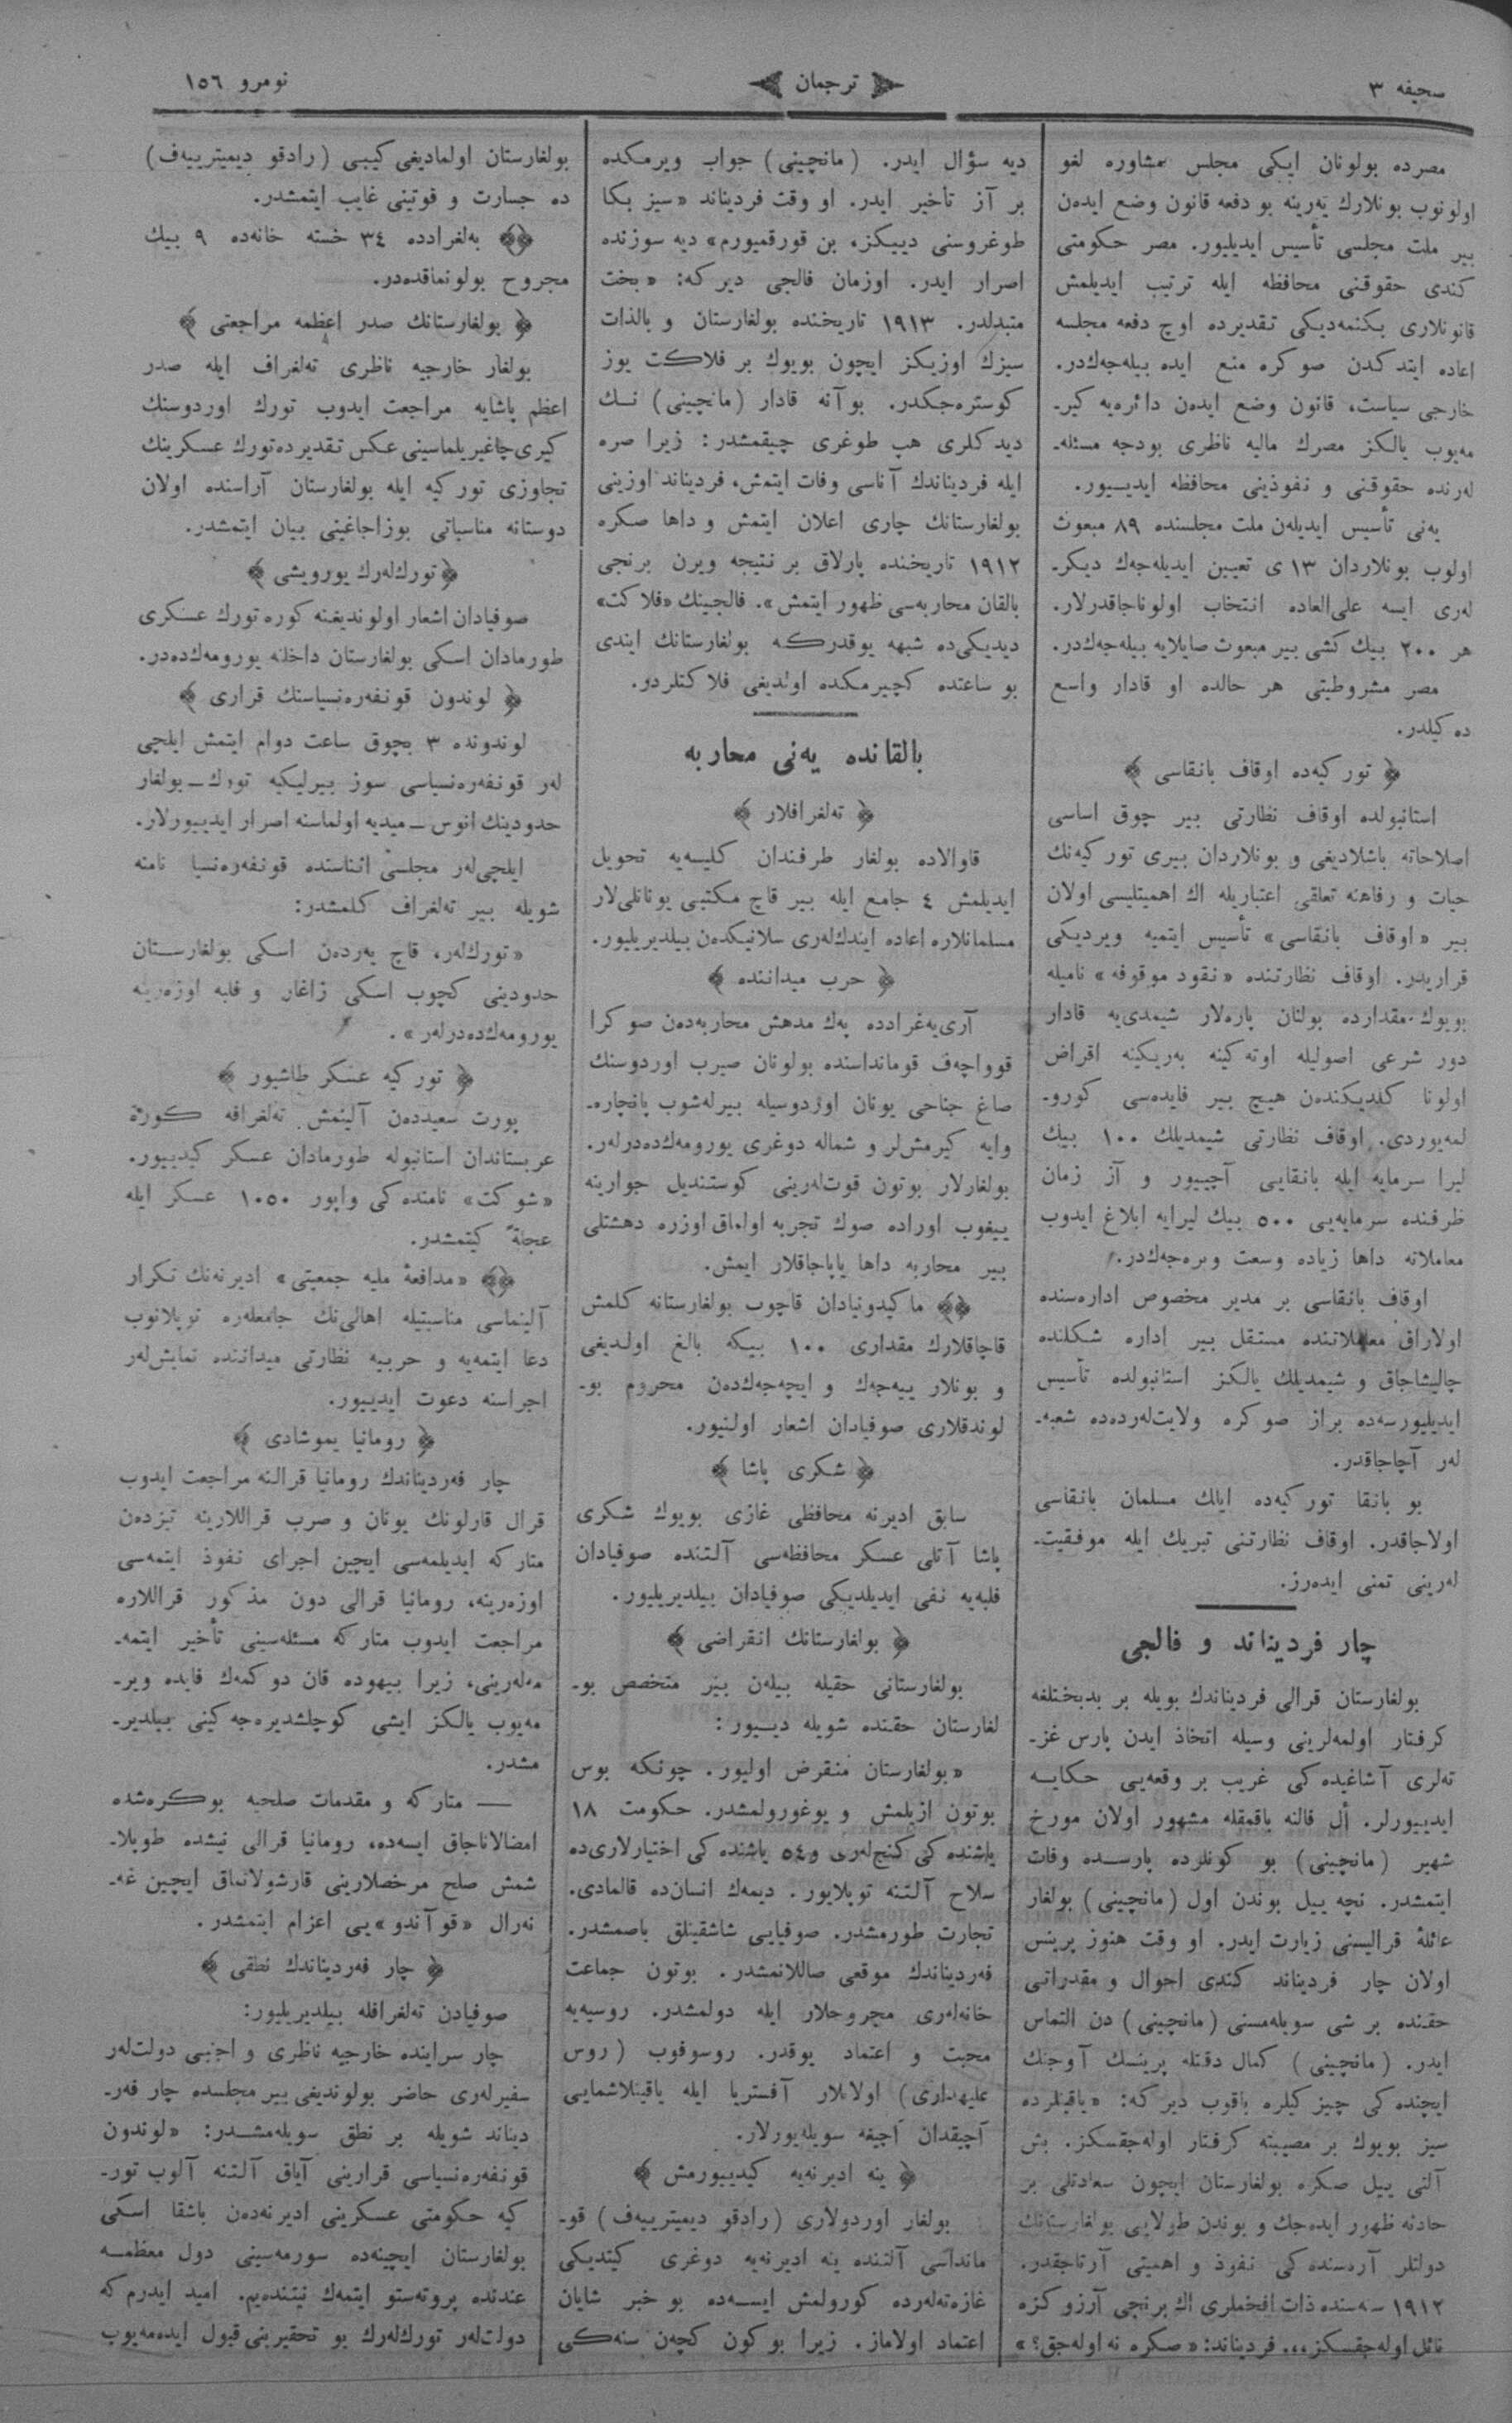 صحیفه ٣
ترجمان
نومرو ١٥٦
مصرده بولونان ایكی مجلس مشاوره لغو
اولونوب بونلارك یەرینه بو دفعه قانون وضع ایدەن
بیر ملت مجلسی تأسیس ایدیلیور. مصر حكومتی
كندی حقوقنی محافظه ایله ترتیب ایدیلمش
قانونلاری بكنمەدیكی تقدیرده اوچ دفعه مجلسه
اعاده ایتدكدن صوكره منع ایده بیلەجەكدر.
خارجی سیاست، قانون وضع ایدەن دائرەیه كیر-
مەیوب یالكز مصرك مالیه ناظری بودجه مسئله-
لەرنده حقوقنی و نفوذینی محافظه ایدیـیور.
یەنی تأسیس ایدیلەن ملت مجلسنده ٨٩ مبعوث
اولوب بونلاردان ١٣ ی تعیین ایدیلەجەك دیكر-
لەری ایسه علی‌العاده انتخاب اولوناجاقدرلار.
هر ٢٠٠ بیك كشی بیر مبعوث صایلایه بیلەجەكدر.
مصر مشروطیتی هر حالده او قادار واسع
ده كیلدر.
﴿ توركیەده اوقاف بانقاسی ﴾
استانبولده اوقاف نظارتی بیر چوق اساسی
اصلاحاته باشلادیغی و بونلاردان بیری توركیەنك
حیات و رفاهنه تعلقی اعتباریله اك اهمیتلیسی اولان
بیر «اوقاف بانقاسی» تأسیس ایتمیه ویردیكی
قراریدر. اوقاف نظارتنده «نقود موقوفه» نامیله
بویوك مقدارده بولنان پارەلار شیمدی‌یه قادار
دور شرعی اصولیله اوتەكینه بەریكینه اقراض
اولونا كلدیكندەن هیچ بیر فایدەسی كورو-
لمەیوردی. اوقاف نظارتی شیمدیلك ١٠٠ بیك
لیرا سرمایه ایله بانقایی آچییور و آز زمان
ظرفنده سرمایەیی ٥٠٠ بیك لیرایه ابلاغ ایدوب
معاملاته داها زیاده وسعت ویرەجەكدر.
اوقاف بانقاسی بر مدیر مخصوص ادارەسنده
اولاراق معاملاتنده مستقل بیر اداره شكلنده
چالیشاجاق و شیمدیلك یالكز استانبولده تأسیس
ایدیلیورسەده براز صوكره ولایت‌لەردەده شعبه-
لەر آچاجاقدر.
بو بانقا توركیەده ایلك مسلمان بانقاسی
اولاجاقدر. اوقاف نظارتنی تبریك ایله موفقیت-
لەرینی تمنی ایدەرز.
چار فردیناند و فالجی
بولغارستان قرالی فردیناندك بویله بر بدبختلغه
كرفتار اولمەلرینی وسیله اتخاذ ایدن پارس غز-
تەلری آشاغیدەكی غریب بر وقعەیی حكایـه
ایدییورلر. أل فالنه باقمقله مشهور اولان مورخ
شهیر (مانچینی) بو كونلرده پارسـده وفات
ایتمشدر. نچه ییل بوندن اول (مانچینی) بولغار
عائلهٔ قرالیسنی زیارت ایدر. او وقت هنوز پرینس
اولان چار فردیناند كندی احوال و مقدراتی
حقنده بر شی سویلەمسنی (مانچینی) دن التماس
ایدر. (مانچینی) كمال دقتله پرینسك آوجنك
ایچندەكی چیزكیلره باقوب دیركه: «یاقینلرده
سیز بویوك بر مصیبته كرفتار اولەجقسكز. بش
آلتی ییل صكره بولغارستان ایچون سعادتلی بر
حادثه ظهور ایدەجك و بوندن طولایی بولغارستانك
دولتلر آرەسندەكی نفوذ و اهمیتی آرتاجقدر.
١٩١٢ سنەسنده ذات افخملری اك برنجی آرزوكزه
نائل اولەجقسكز... فردیناند: «صكره نه اولەجق؟»
دیه سؤال ایدر. (مانچینی) جواب ویرمكده
بر آز تأخیر ایدر. او وقت فردیناند «سیز بكا
طوغروسنی دییكز، بن قورقمیورم» دیه سوزنده
اصرار ایدر. اوزمان فالجی دیركه: «بخت
متبدلدر. ١٩١٣ تاریخنده بولغارستان و بالذات
سیزك اوزیكز ایچون بویوك بر فلاكت یوز
كوسترەجكدر. بو آنه قادار (مانچینی) نـك
دیدكلری هپ طوغری چیقمشدر: زیرا صره
ایله فردیناندك آناسی وفات ایتمش، فردیناند اوزینی
بولغارستانك چاری اعلان ایتمش و داها صكره
١٩١٢ تاریخنده پارلاق بر نتیجه ویرن برنجی
بالقان محاربەسی ظهور ایتمش». فالجینك «فلاكت»
دیدیكی‌ده شبهه یوقدركه بولغارستانك ایندی
بو ساعتده كچیرمكده اولدیغی فلاكتلردو.
بالقانده یەنی محاربه
﴿ تەلغرافلار ﴾
قاوالاده بولغار طرفندان كلیسەیه تحویل
ایدیلمش ٤ جامع ایله بیر قاچ مكتبی یونانلی‌لار
مسلمانلاره اعاده ایتدك‌لەری سلانیكدەن بیلدیریلیور.
﴿ حرب میداننده ﴾
آری‌یەغرادده پەك مدهش محاربەدەن صوكرا
قوواچەف قومانداسنده بولونان صیرب اوردوسنك
صاغ جناحی یونان اوردوسیله بیرلەشوب پانچاره-
وایه كیرمش‌لر و شماله دوغری یورومەكدەدرلەر.
بولغارلار بوتون قوت‌لەرینی كوستندیل جوارینه
ییغوب اوراده صوك تجربه اولماق اوزره دهشتلی
بیر محاربه داها یاپاجاقلار ایمش.
ماكیدونیادان قاچوب بولغارستانه كلمش
قاچاقلارك مقداری ١٠٠ بیكه بالغ اولـدیغی
و بونلار ییەجەك و ایچەجەكدەن محروم بو-
لوندقلاری صوفیادان اشعار اولنیور.
﴿ شكری پاشا ﴾
سابق ادیرنه محافظی غازی بویوك شكری
پاشا آتلی عسكر محافظەسی آلتنده صوفیادان
فلبەیه نفی ایدیلدیكی صوفیادان بیلدیریلیور.
﴿ بولغارستانك انقراضی ﴾
بولغارستانی حقیله بیلەن بیر متخصص بو-
لغارستان حقنده شویله دیـیور:
«بولغارستان منقرض اولیور. چونكه بوس
بوتون ازیلمش و یوغورولمشدر. حكومت ١٨
یاشندەكی كنج‌لەری و ٥٤ یاشندەكی اختیارلاری‌ده
سلاح آلتنه توپلایور. دیمەك انسان‌ده قالمادی.
تجارت طورمشدر. صوفیایی شاشقینلق باصمشدر.
فەردیناندك موقعی صاللانمشدر. بوتون جماعت
خانەلەری مجروحلار ایله دولمشدر. روسیەیه
محبت و اعتماد یوقدر. روسوفوب (روس
علیهداری) اولانلار آفستریا ایله یاقینلاشمایی
آچیقدان آچیغه سویلەیورلار.
﴿ ینه ادیرنەیه كیدییورمش ﴾
بولغار اوردولاری (رادقو دیمیترییەف) قو-
مانداسی آلتنده ینه ادیرنەیه دوغری كیتدیكی
غازەتەلەرده كورولمش ایسـەده بو خبر شایان
اعتماد اولاماز. زیرا بوكون كچەن سنەكی
بولغارستان اولمادیغی كیبی (رادقو دیمیترییەف)
ده جسارت و قوتینی غایب ایتمشدر.
بەلغرادده ٣٤ خسته خانەده ٩ بیك
مجروح بولونماقدەدر.
﴿ بولغارستانك صدر اعظمه مراجعتی ﴾
بولغار خارجیه ناظری تەلغراف ایله صدر
اعظم پاشایه مراجعت ایدوب تورك اوردوسنك
كیری چاغیریلماسینی عكس تقدیرده تورك عسكرینك
تجاوزی توركیه ایله بولغارستان آراسنده اولان
دوستانه مناسباتی بوزاجاغینی بیان ایتمشدر.
﴿ تورك‌لەرك یورویشی ﴾
صوفیادان اشعار اولوندیغنه كوره تورك عسكری
طورمادان اسكی بولغارستان داخلنه یورومەكدەدر.
﴿ لوندون قونفەرەنسیاسنك قراری ﴾
لوندونده ٣ بچوق ساعت دوام ایتمش ایلچی
لەر قونفەرەنسیاسی سوز بیرلیكیه تورك — بولغار
حدودینك انوس — میدیه اولماسنه اصرار ایدییورلار.
ایلچی‌لەر مجلسی اثناسنده قونفەرەنسیا نامنه
شویله بیر تەلغراف كلمشدر:
«تورك‌لەر، قاچ یەردەن اسكی بولغارسـتان
حدودینی كچوب اسكی زاغار و فلبه اوزەرینه
یورومەكدەدرلەر».
﴿ توركیه عسكر طاشیور ﴾
پورت سعیددەن آلینمش تەلغرافه كـوره
عربستاندان استانبوله طورمادان عسكر كیدییور.
«شوكت» نامندەكی واپور ١٠٥٠ عسكر ایله
عجلةً كیتمشدر.
«مدافعهٔ ملیه جمعیتی» ادیرنەنك تكرار
آلینماسی مناسبتیله اهالی‌نك جامعلەره توپلانوب
دعا ایتمەیه و حربیه نظارتی میداننده نمایش‌لەر
اجراسنه دعوت ایدییور.
﴿ رومانیا یموشادی ﴾
چار فەردیناندك رومانیا قرالنه مراجعت ایدوب
قرال قارلونك یونان و صرب قراللارینه تیزدەن
متاركه ایدیلمەسی ایچین اجرای نفوذ ایتمەسی
اوزەرینه، رومانیا قرالی دون مذكور قراللاره
مراجعت ایدوب متاركه مسئلەسینی تأخیر ایتمه-
مەلەرینی، زیرا بیهوده قان دوكمەك فایده ویر-
مەیوب یالكز ایشی كوچلشدیرەجەكینی بیلدیر-
مشدر.
— متاركه و مقدمات صلحیه بوكرەشده
امضالاناجاق ایسەده، رومانیا قرالی نیشده طوپلا-
شمش صلح مرخصلارینی قارشولانماق ایچین غه-
نەرال «قوآندو» یی اعزام ایتمشدر.
﴿ چار فەردیناندك نطقی ﴾
صوفیادن تەلغرافله بیلدیریلیور:
چار سراینده خارجیه ناظری و اجنبی دولت‌لەر
سفیرلەری حاضر بولوندیغی بیر مجلسده چار فەر-
دیناند شویله بر نطق سویلەمشـدر: «لوندون
قونفەرەنسیاسی قرارینی آیاق آلتنه آلوب تور-
كیه حكومتی عسكرینی ادیرنەدەن باشقا اسكی
بولغارستان ایچینەده سورمەسینی دول معظمـه
عندنده پروتەستو ایتمەك نیتندەیم. امید ایدرم كه
دولت‌لەر تورك‌لەرك بو تحقیرینی قبول ایدەمەیوب